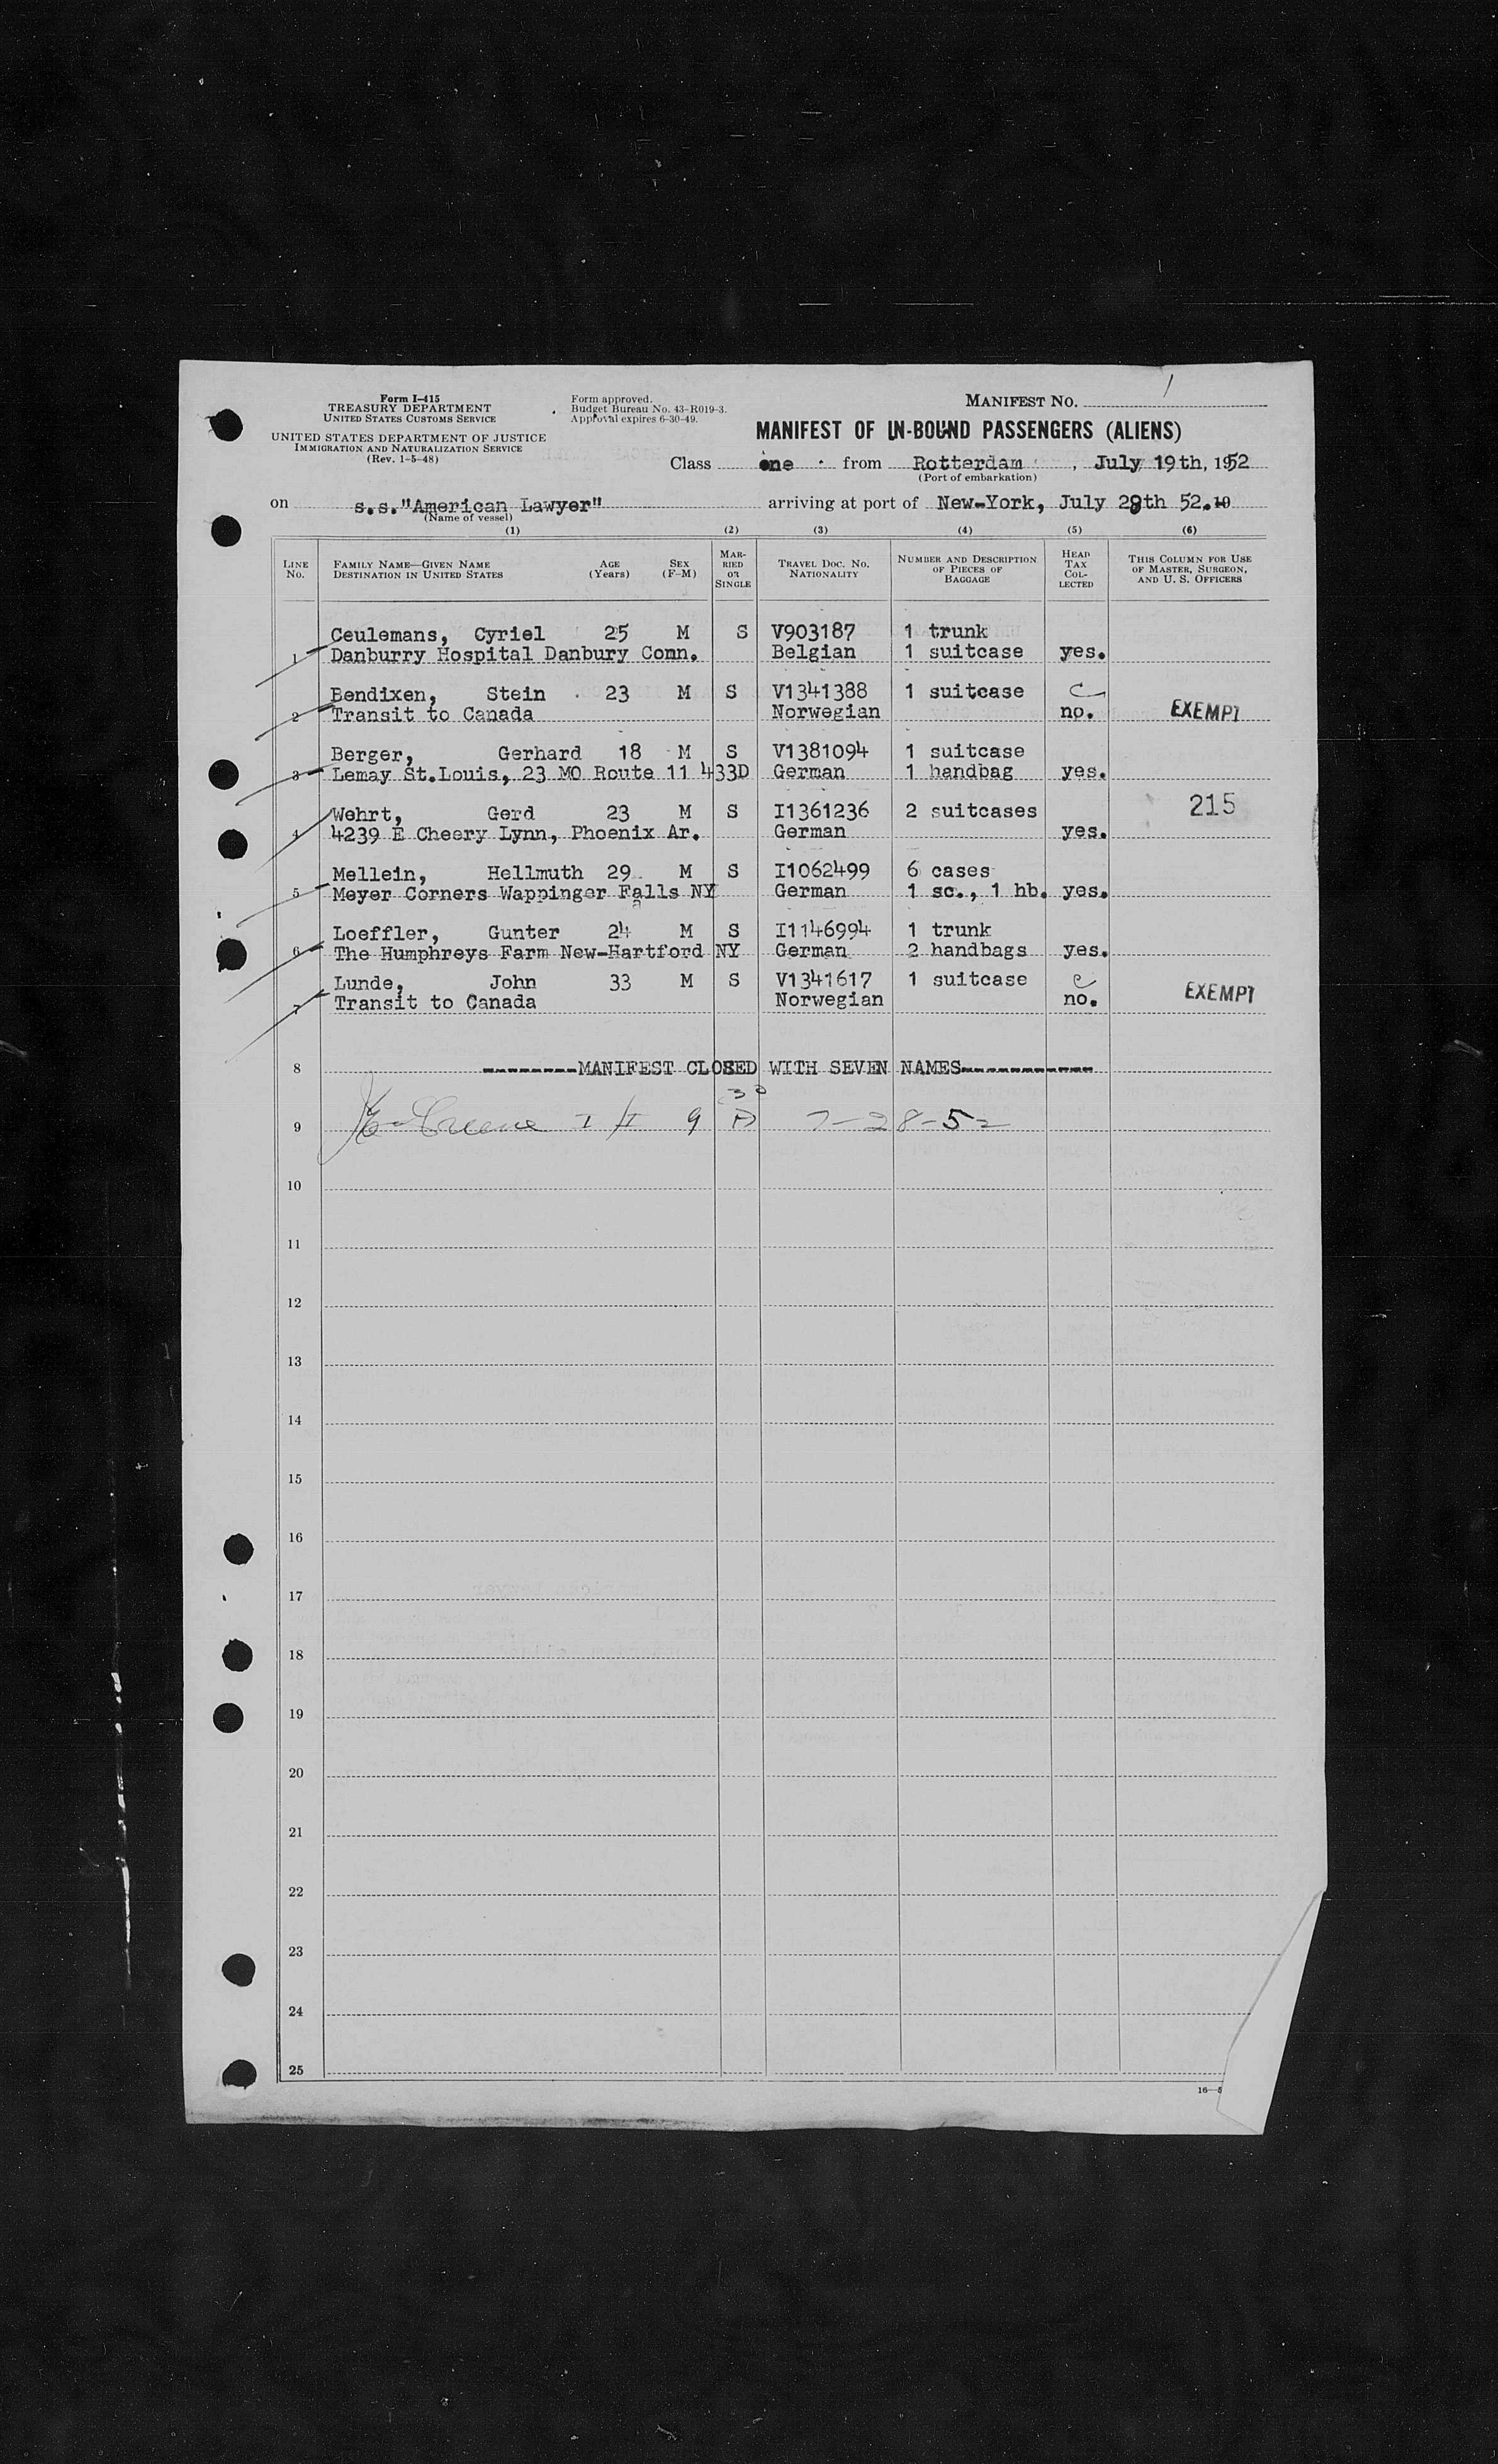 Form I-415
TREASURY DEPARTMENT
UNITED STATES CUSTOMS SERVICE
UNITED STATES DEPARTMENT OF JUSTICE
IMMIGRATION AND NATURALIZATION SERVICE
(Rev. 1-5-48)
Form approved.
Budget Bureau No. 43-R019-3.
Approval expires 6-30-49.
1
MANIFEST NO.
MANIFEST OF IN-BOUND PASSENGERS (ALIENS)
Class one from Rotterdam, July 19th, 1952
(Port of embarkation)
on s.s."American Lawyer" arriving at port of New-York, July 28th 52.19
(Name of vessel)
(1) (2) (3) (4) (5) (6)
LINE NO. FAMILY NAME—GIVEN NAME DESTINATION IN UNITED STATES AGE (Years) SEX (F-M) MARRIED OR SINGLE TRAVEL DOC. NO. NATIONALITY NUMBER AND DESCRIPTION OF PIECES OF BAGGAGE HEAD TAX COLLECTED THIS COLUMN FOR USE OF MASTER, SURGEON, AND U. S. OFFICERS
Ceulemans, Cyriel 25 M S V903187 1 trunk
1 Danburry Hospital Danbury Conn. Belgian 1 suitcase yes.
Bendixen, Stein 23 M S V1341388 1 suitcase
2 Transit to Canada Norwegian no. EXEMPT
Berger, Gerhard 18 M S V1381094 1 suitcase
3 Lemay St.Louis, 23 MO Route 11 433D German 1 handbag yes.
Wehrt, Gerd 23 M S I1361236 2 suitcases 215
4 4239 E Cheery Lynn, Phoenix Ar. German yes.
Mellein, Hellmuth 29 M S I1062499 6 cases
5 Meyer Corners Wappinger Falls NY German 1 sc., 1 hb. yes.
a
Loeffler, Gunter 24 M S I1146994 1 trunk
6 The Humphreys Farm New-Hartford NY German 2 handbags yes.
Lunde, John 33 M S V1341617 1 suitcase
7 Transit to Canada Norwegian no. EXEMPT
8 -------MANIFEST CLOSED WITH SEVEN NAMES----------
9 7-28-52
10
11
12
13
14
15
16
17
18
19
20
21
22
23
24
25